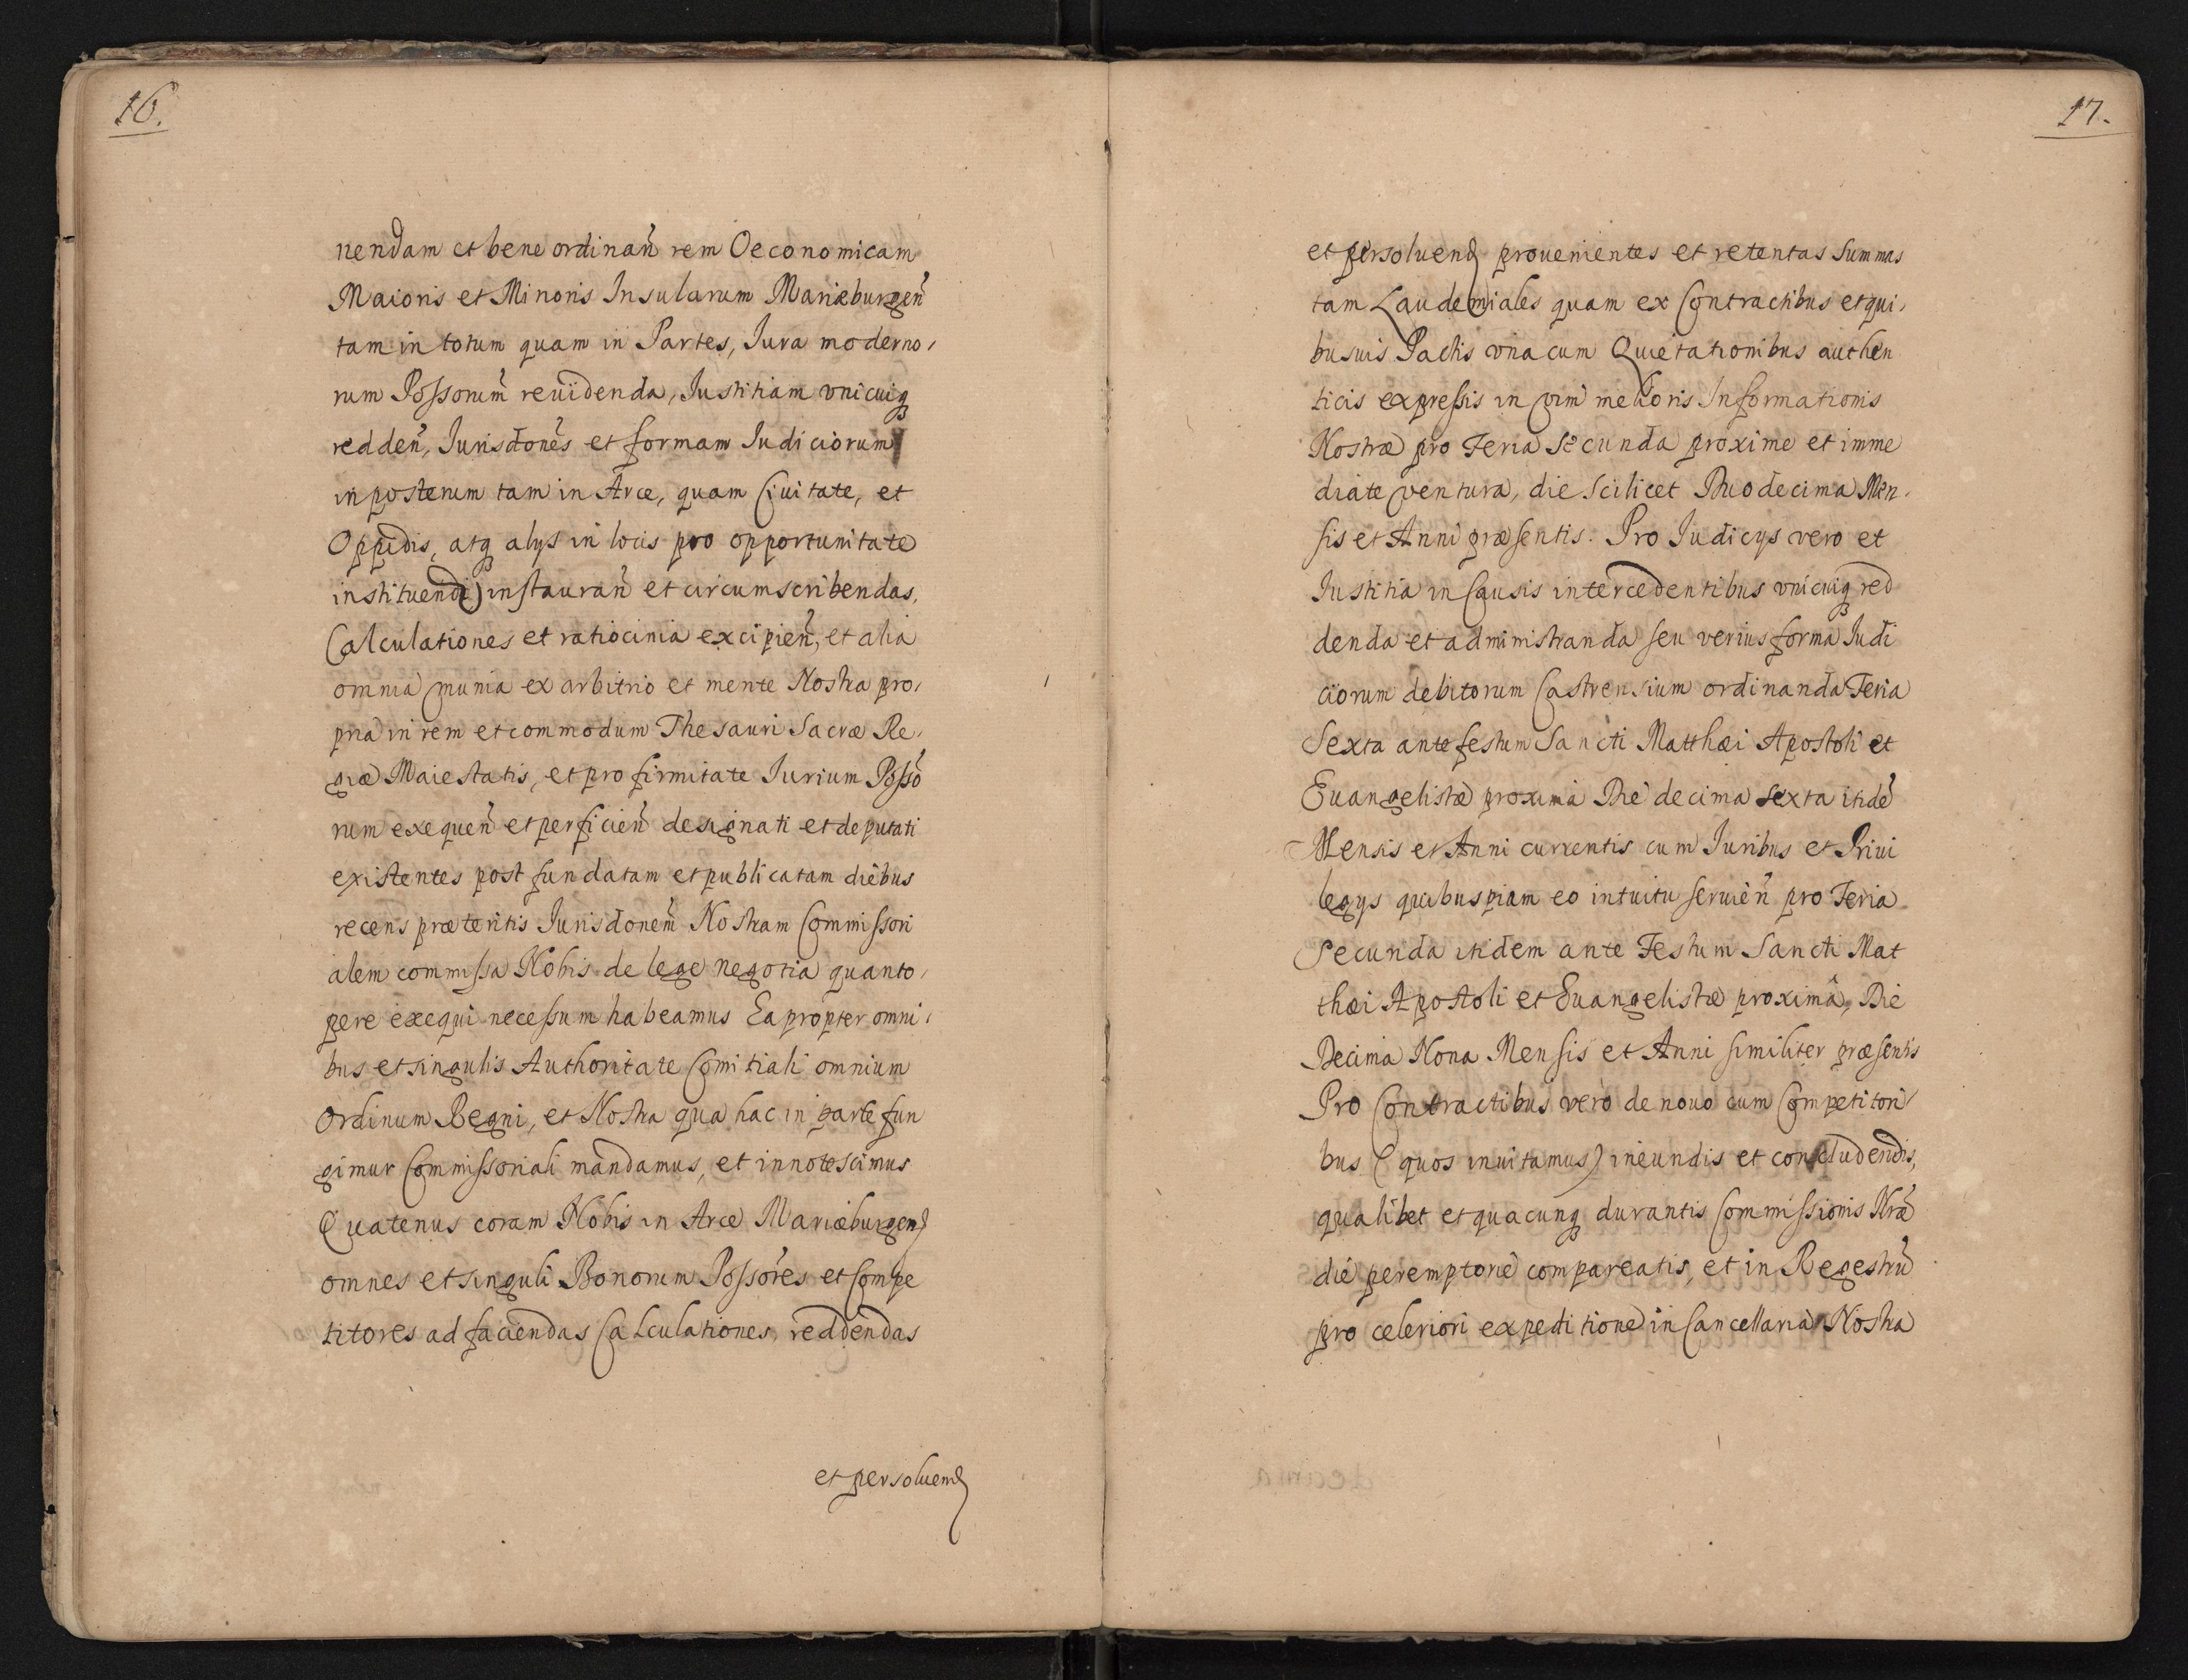 16.
uendam et bene ordinañ rem Oeconomicam
Maioris et Minoris Insularum Mariæburgeñ
tam in totum quam in Partes, Iura moderno,
rum Possorum̃ reuidenda, Iustitiam vnicuiq́
reddeñ, Jurisdones̃ et formam Iudiciorum
in posterum tam in Arce, quam Ciuitate, et
Oppidis, atq́ alys in locis pro opportunitate
instituendi) instaurañ et circumscribendas,
Calculationes et ratiocinia excipieñ, et alia
omnia munia ex arbitrio et mente Nostra pro,
pria in rem et commodum Thesauri Sacræ Re,
giæ Maiestatis, et pro firmitate Iurium Possõ
rum exequeñ et perficieñ designati et deputati
existentes post fundatam et publicatam diebus
recens præteritis Jurisdonem̃ Nostram Commissori
alem commissa Nobis de lege negotia quanto,
pere exequi necessum habeamus Eapropter omni,
bus et singulis Authoritate Comitiali omnium
Ordinum Regni, et Nostra qua hac in parte fun
gimur Commissoriali mandamus, et innotescimus
Quatenus coram Nobis in Arce Mariæburgen
omnes et singuli Bonorum Possores̃ et Compe
titores ad faciendas Calculationes, reddendas
et persoluend
17.
et persoluend prouenientes et retentas Summas
tam Laudemiales quam ex Contractibus et qui,
busuis Pactis vna cum Quietationibus authen
ticis expressis in vim melioris Informationis
Nostræ pro Feria Secunda proxime et imme
diate ventura, die Scilicet Duodecima Men,
sis et Anni præsentis. Pro Iudicys vero et
Iustitia in Causis intercedentibus vnicuiq́ red
denda et administranda seu verius forma Iudi
ciorum debitorum Castrensium ordinanda Feria
Sexta ante festum Sancti Matthæi Apostoli et
Euangelistæ proxima Die decima Sexta itidẽ
Mensis et Anni currentis cum Iuribus et Priui
legys quibuspiam eo intuitu seruieñ pro Feria
Secunda itidem ante Festum Sancti Mat
thæi Apostoli et Euangelistæ proximâ, Die
Decima Nona Mensis et Anni similiter præsentis
Pro Contractibus vero de nouo cum Competitori,
bus (quos inuitamus) ineundis et concludendis,
qualibet et quacunq́ durantis Commissionis Nrã
die peremptorie compareatis, et in Regestrũ
pro celeriori expeditione in Cancellaria Nostra